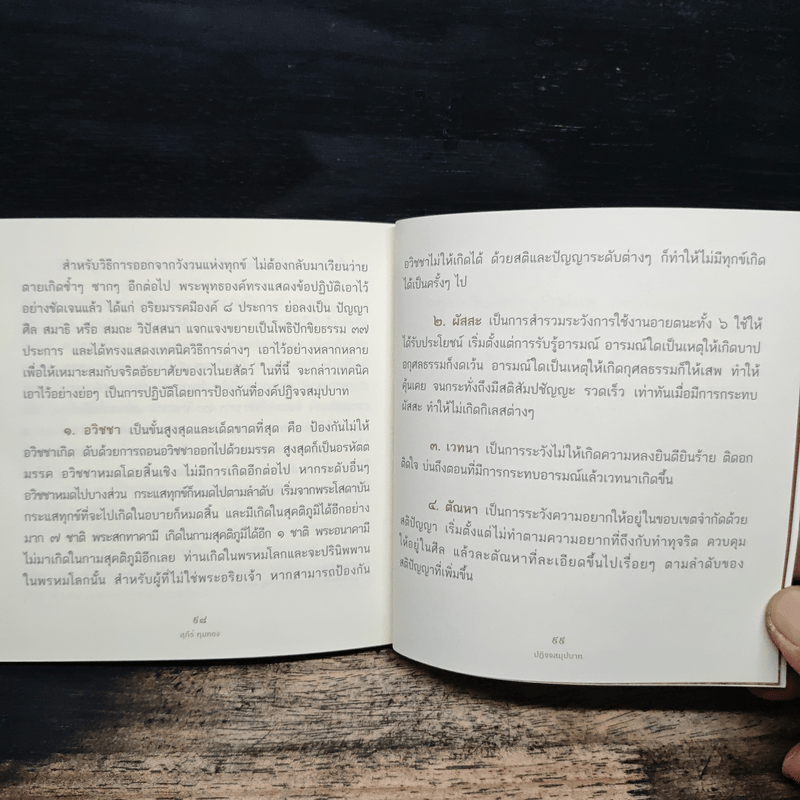 สำหรับวิธีการออกจากวังวนแห่งทุกข์ ไม่ต้องกลับมาเวียนว่าย
ตายเกิดซ้ำๆ ซากๆ อีกต่อไป พระพุทธองค์ทรงแสดงข้อปฏิบัติเอาไว้
อย่างชัดเจนแล้ว ได้แก่ อริยมรรคมีองค์ ๘ ประการ ย่อลงเป็น ปัญญา
ศีล สมาธิ หรือ สมถะ วิปัสสนา แจกแจงขยายเป็นโพธิปักขิยธรรม ๓๗
ประการ และได้ทรงแสดงเทคนิควิธีการต่างๆ เอาไว้อย่างหลากหลาย
เพื่อให้เหมาะสมกับจริตอัธยาศัยของเวไนยสัตว์ ในที่นี้ จะกล่าวเทคนิค
เอาไว้อย่างย่อๆ เป็นการปฏิบัติโดยการป้องกันที่องค์ปฏิจจสมุปบาท
๑. อวิชชา เป็นขั้นสูงสุดและเด็ดขาดที่สุด คือ ป้องกันไม่ให้
อวิชชาเกิด ดับด้วยการถอนอวิชชาออกไปด้วยมรรค สูงสุดก็เป็นอรหัตต
มรรค อวิชชาหมดโดยสิ้นเชิง ไม่มีการเกิดอีกต่อไป หากระดับอื่นๆ
อวิชชาหมดไปบางส่วน กระแสทุกข์ก็หมดไปตามลำดับ เริ่มจากพระโสดาบัน
กระแสทุกข์ที่จะไปเกิดในอบายก็หมดสิ้น และมีเกิดในสุคติภูมิได้อีกอย่าง
มาก ๗ ชาติ พระสกทาคามี เกิดในกามสุคติภูมิได้อีก ๑ ชาติ พระอนาคามี
ไม่มาเกิดในกามสุคติภูมิอีกเลย ท่านเกิดในพรหมโลกและจะปรินิพพาน
ในพรหมโลกนั้น สำหรับผู้ที่ไม่ใช่พระอริยเจ้า หากสามารถป้องกัน
๕๘
สุภีร์ ทุมทอง
อวิชชาไม่ให้เกิดได้ ด้วยสติและปัญญาระดับต่างๆ ก็ทำให้ไม่มีทุกข์เกิด
ได้เป็นครั้งๆ ไป
๒. ผัสสะ เป็นการสำรวมระวังการใช้งานอายตนะทั้ง ๖ ใช้ให้
ได้รับประโยชน์ เริ่มตั้งแต่การรับรู้อารมณ์ อารมณ์ใดเป็นเหตุให้เกิดบาป
อกุศลธรรมก็งดเว้น อารมณ์ใดเป็นเหตุให้เกิดกุศลธรรมก็ให้เสพ ทำให้
คุ้นเคย จนกระทั่งถึงมีสติสัมปชัญญะ รวดเร็ว เท่าทันเมื่อมีการกระทบ
ผัสสะ ทำให้ไม่เกิดกิเลสต่างๆ
๓. เวทนา เป็นการระวังไม่ให้เกิดความหลงยินดียินร้าย ติดอก
ติดใจ บ่นถึงตอนที่มีการกระทบอารมณ์แล้วเวทนาเกิดขึ้น
๔. ตัณหา เป็นการระวังความอยากให้อยู่ในขอบเขตจำกัดด้วย
สติปัญญา เริ่มตั้งแต่ไม่ทำตามความอยากที่ถึงกับทำทุจริต ควบคุม
ให้อยู่ในศีล แล้วละตัณหาที่ละเอียดขึ้นไปเรื่อยๆ ตามลำดับของ
สติปัญญาที่เพิ่มขึ้น
๕๙
ปฏิจจสมุปบาท